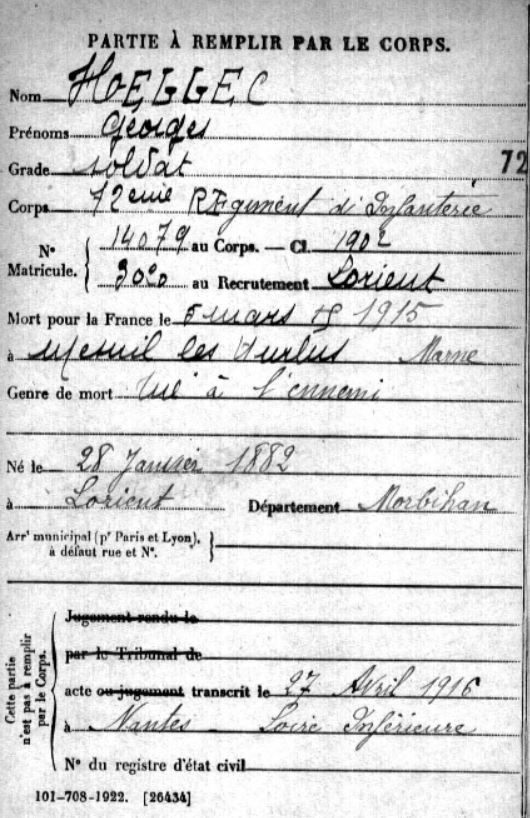 PARTIE À REMPLIR PAR LE CORPS.
Nom HOELLEC
Prénoms Georges
Grade soldat
72
Corps 72ème REgiment d'Infanterie
N° Matricule. 14079 au Corps. — Cl. 1902
3020 au Recrutement Lorient
Mort pour la France le 5 mars 1915
à Mesnil les Hurlus Marne
Genre de mort tué à l'ennemi
Né le 28 Janvier 1882
à Lorient Département Morbihan
Arrt municipal (pr Paris et Lyon),
à défaut rue et N°.
Cette partie
n'est pas à remplir
par le Corps.
Jugement rendu le
par le Tribunal de
acte ou jugement transcrit le 27 Avril 1916
à Nantes Loire Inférieure
N° du registre d'état civil
101-708-1922. [26434]